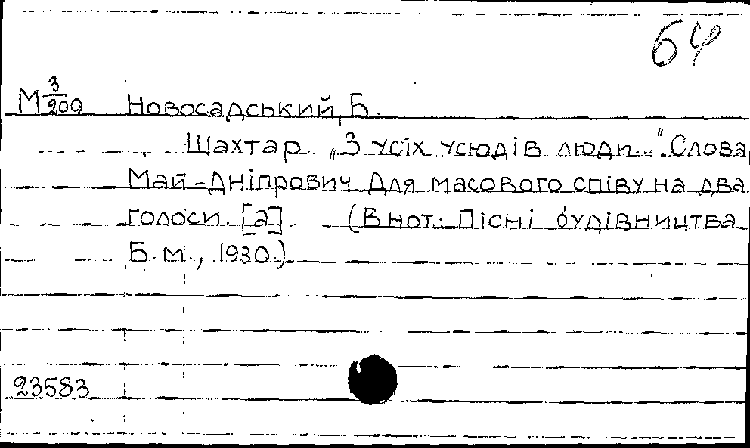 64
М 3/200 Новосадський, Б.
Шахтар „З усіх усюдів люди..." Слова
Май-Дніпрович Для масового співу на два
голоси. [a] (В нот.: Пісні будівництва
Б. м., 1930.)
23583